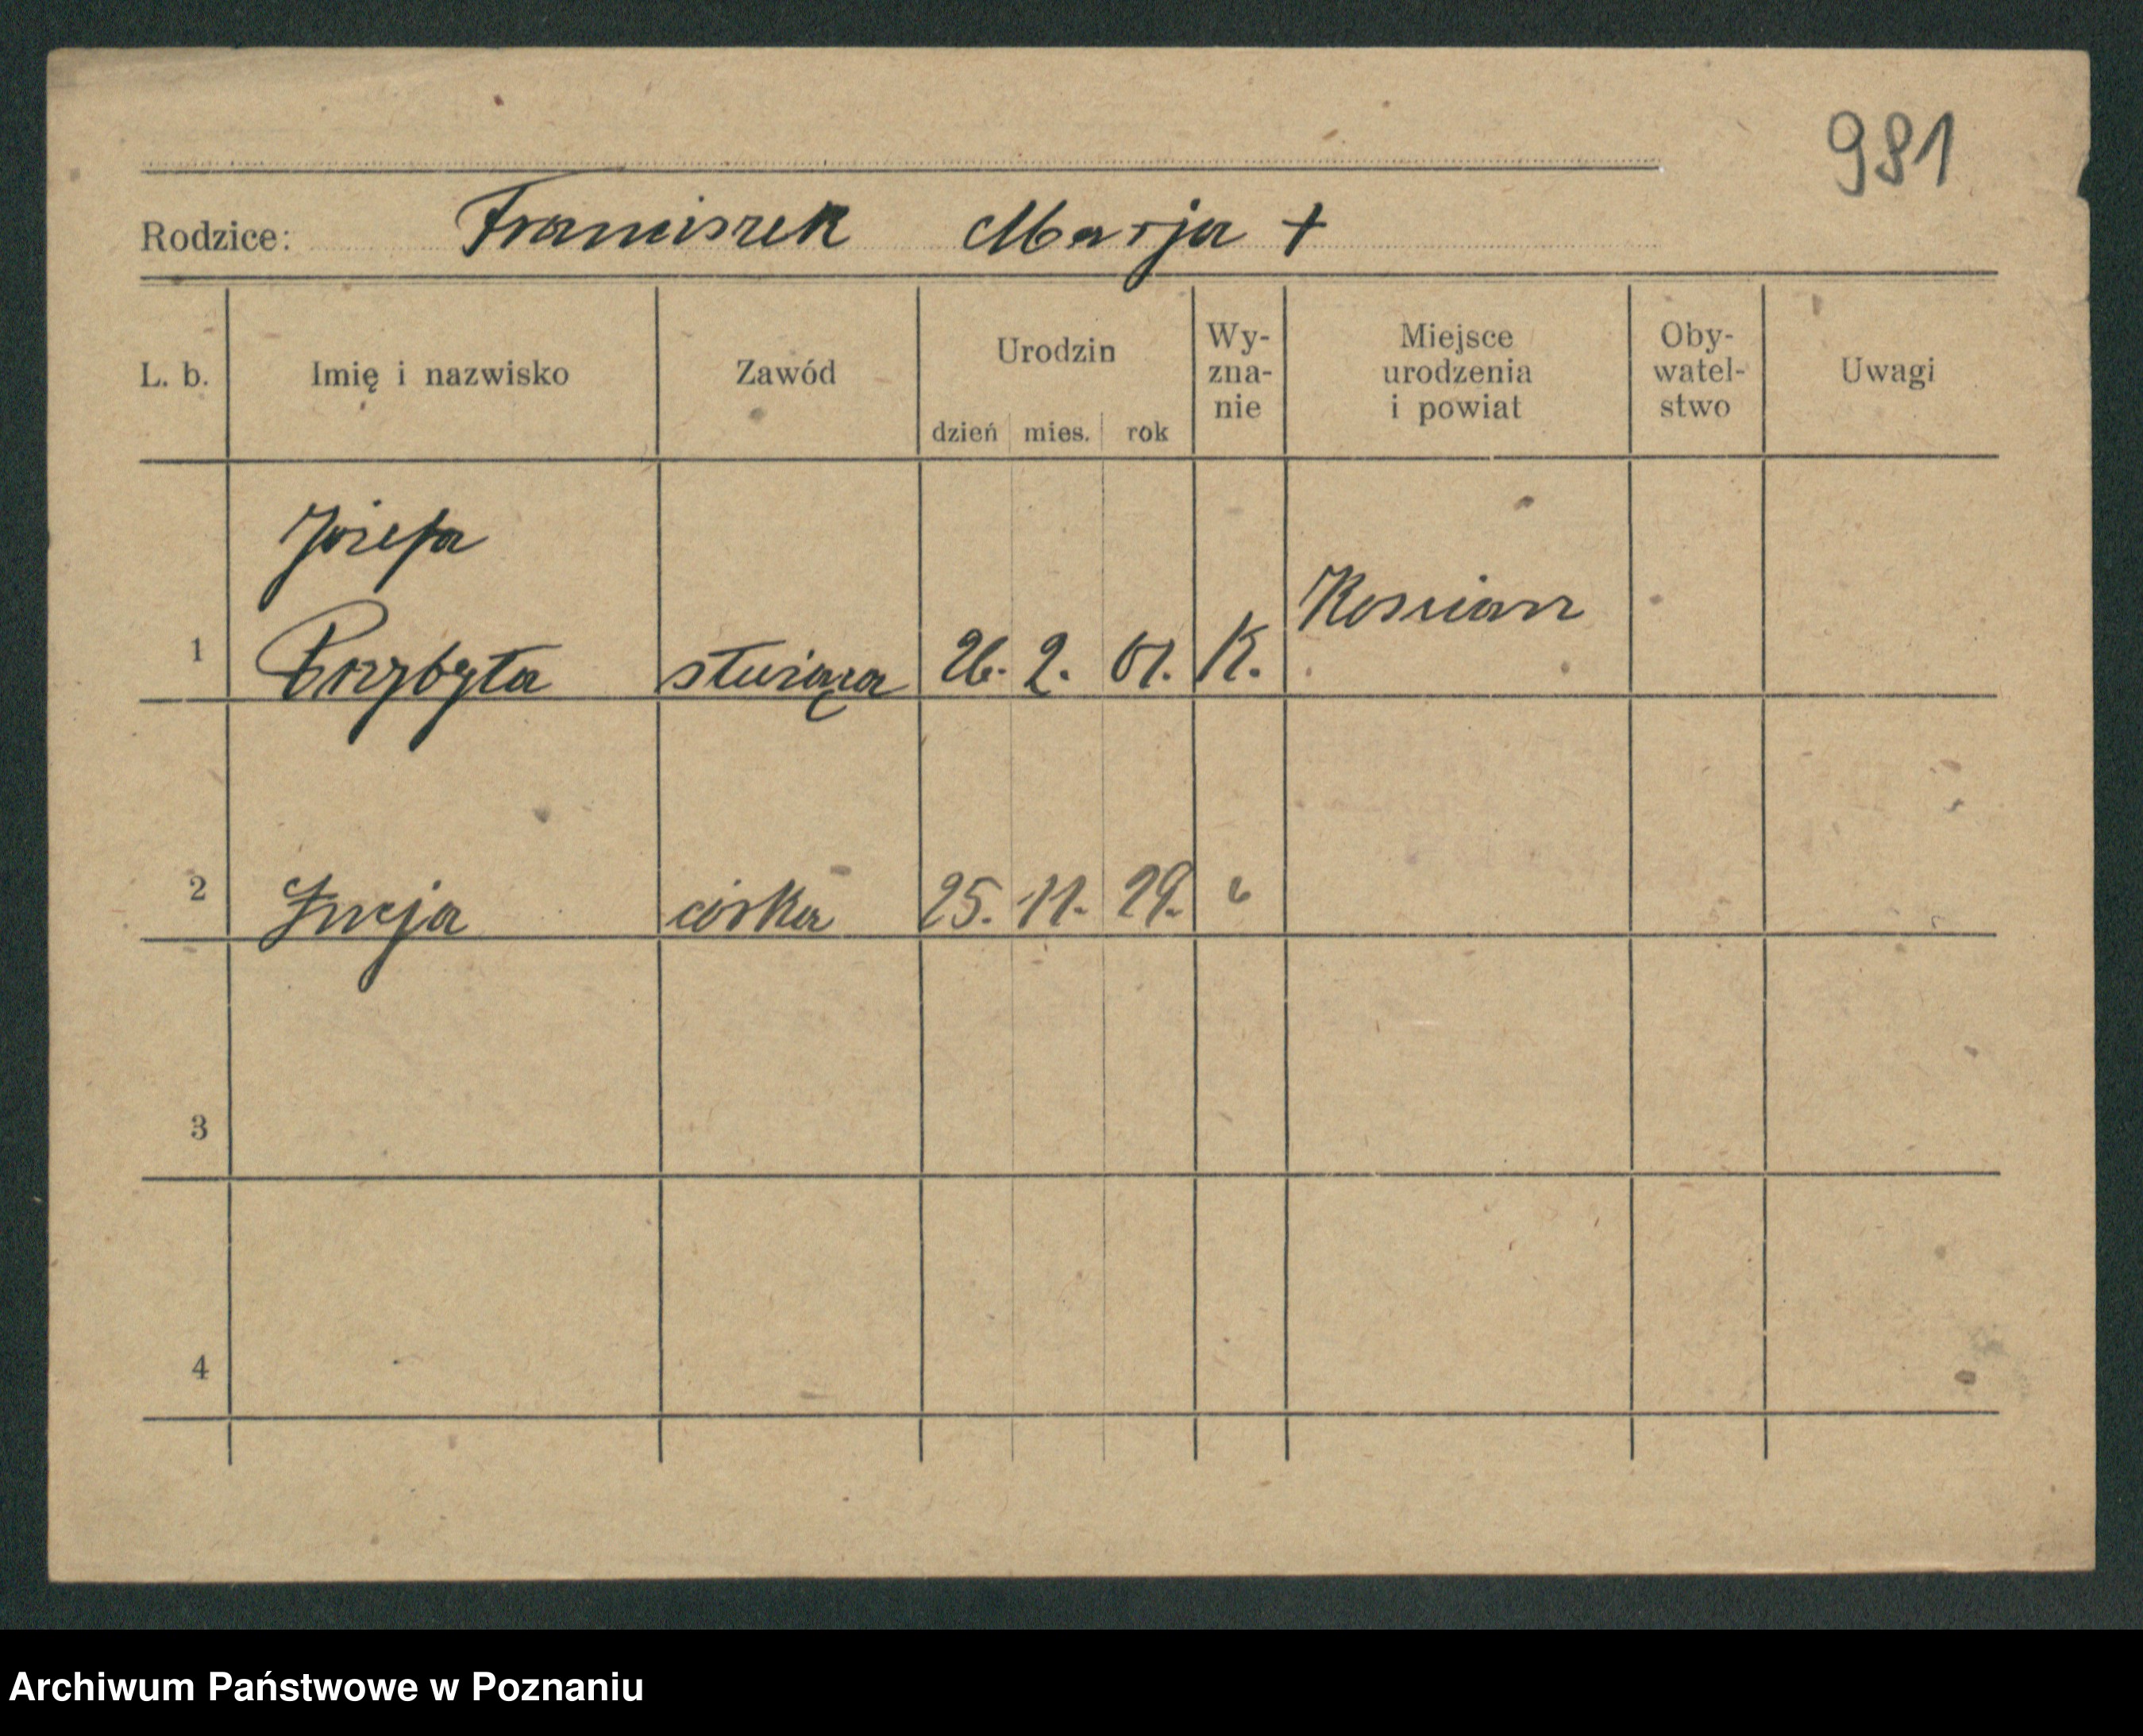 981
Rodzice: Franciszek Marja +
L. b. Imię i nazwisko Zawód Urodzin dzień mies. rok Wy-zna-nie Miejsce urodzenia i powiat Oby-watel-stwo Uwagi
Józefa
Kościan
1 Przybyła służąca 26. 2. 01. K.
2 Łucja córka 25. 11. 29. "
3
4
Archiwum Państwowe w Poznaniu